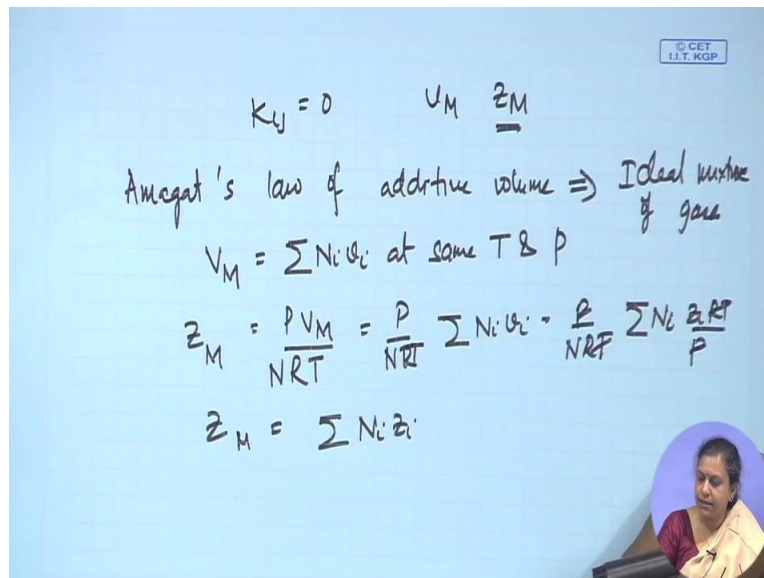 © CET
I.I.T. KGP
K_ij = 0 V_M Z_M
Amagat's law of additive volume ⇒ Ideal mixture
of gases
V_M = Σ N_i v_i at same T & P
Z_M = P V_M / NRT = P / NRT Σ N_i v_i = P / NRT Σ N_i z_i RT / P
Z_M = Σ N_i z_i